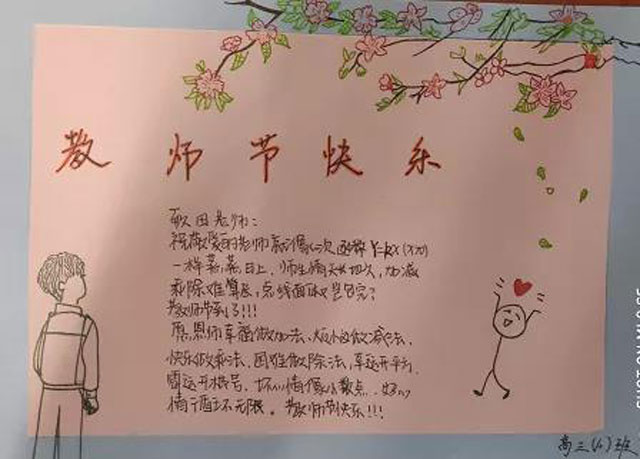 教师节快乐
敬田老师:
祝敬爱的老师就像一次函数 Y=kx (x>0)
一样蒸蒸日上,师生情天长地久,加减
乘除难算尽,点线面体岂包完?
教师节到了!!!
愿恩师幸福做加法、烦心做减法、
快乐做乘法、困难做除法,幸运开平方,
霉运开根号,坏心情像小数点,好心
情循环无限。教师节快乐!!!
高三(6)班
SHOT ON M